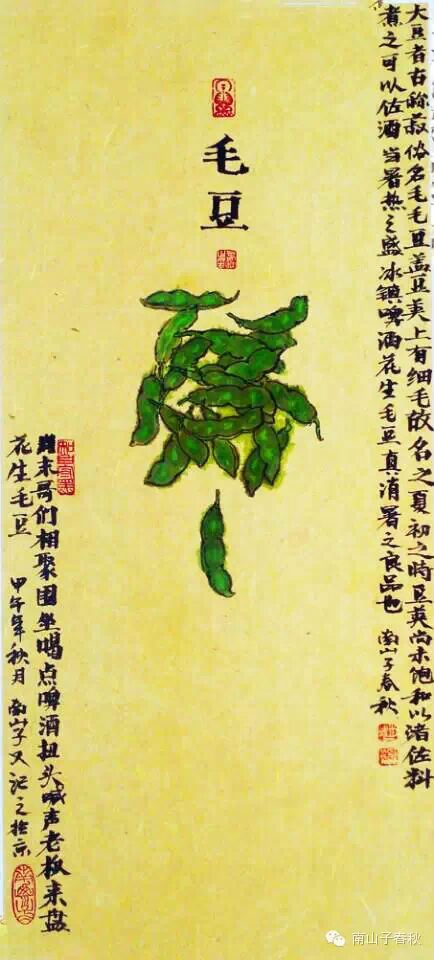 大豆者古称菽俗名毛毛豆盖豆荚上有细毛故名之夏初之時豆荚尚未饱和以诸佐料
煮之可以佐酒当暑热之盛冰镇啤酒花生毛豆真消暑之良品也 南山子春秋
毛豆
末哥们相聚围坐喝点啤酒扭头喊声老板来盘
花生毛豆 甲午年秋月 南山子又记之於京
南山子春秋